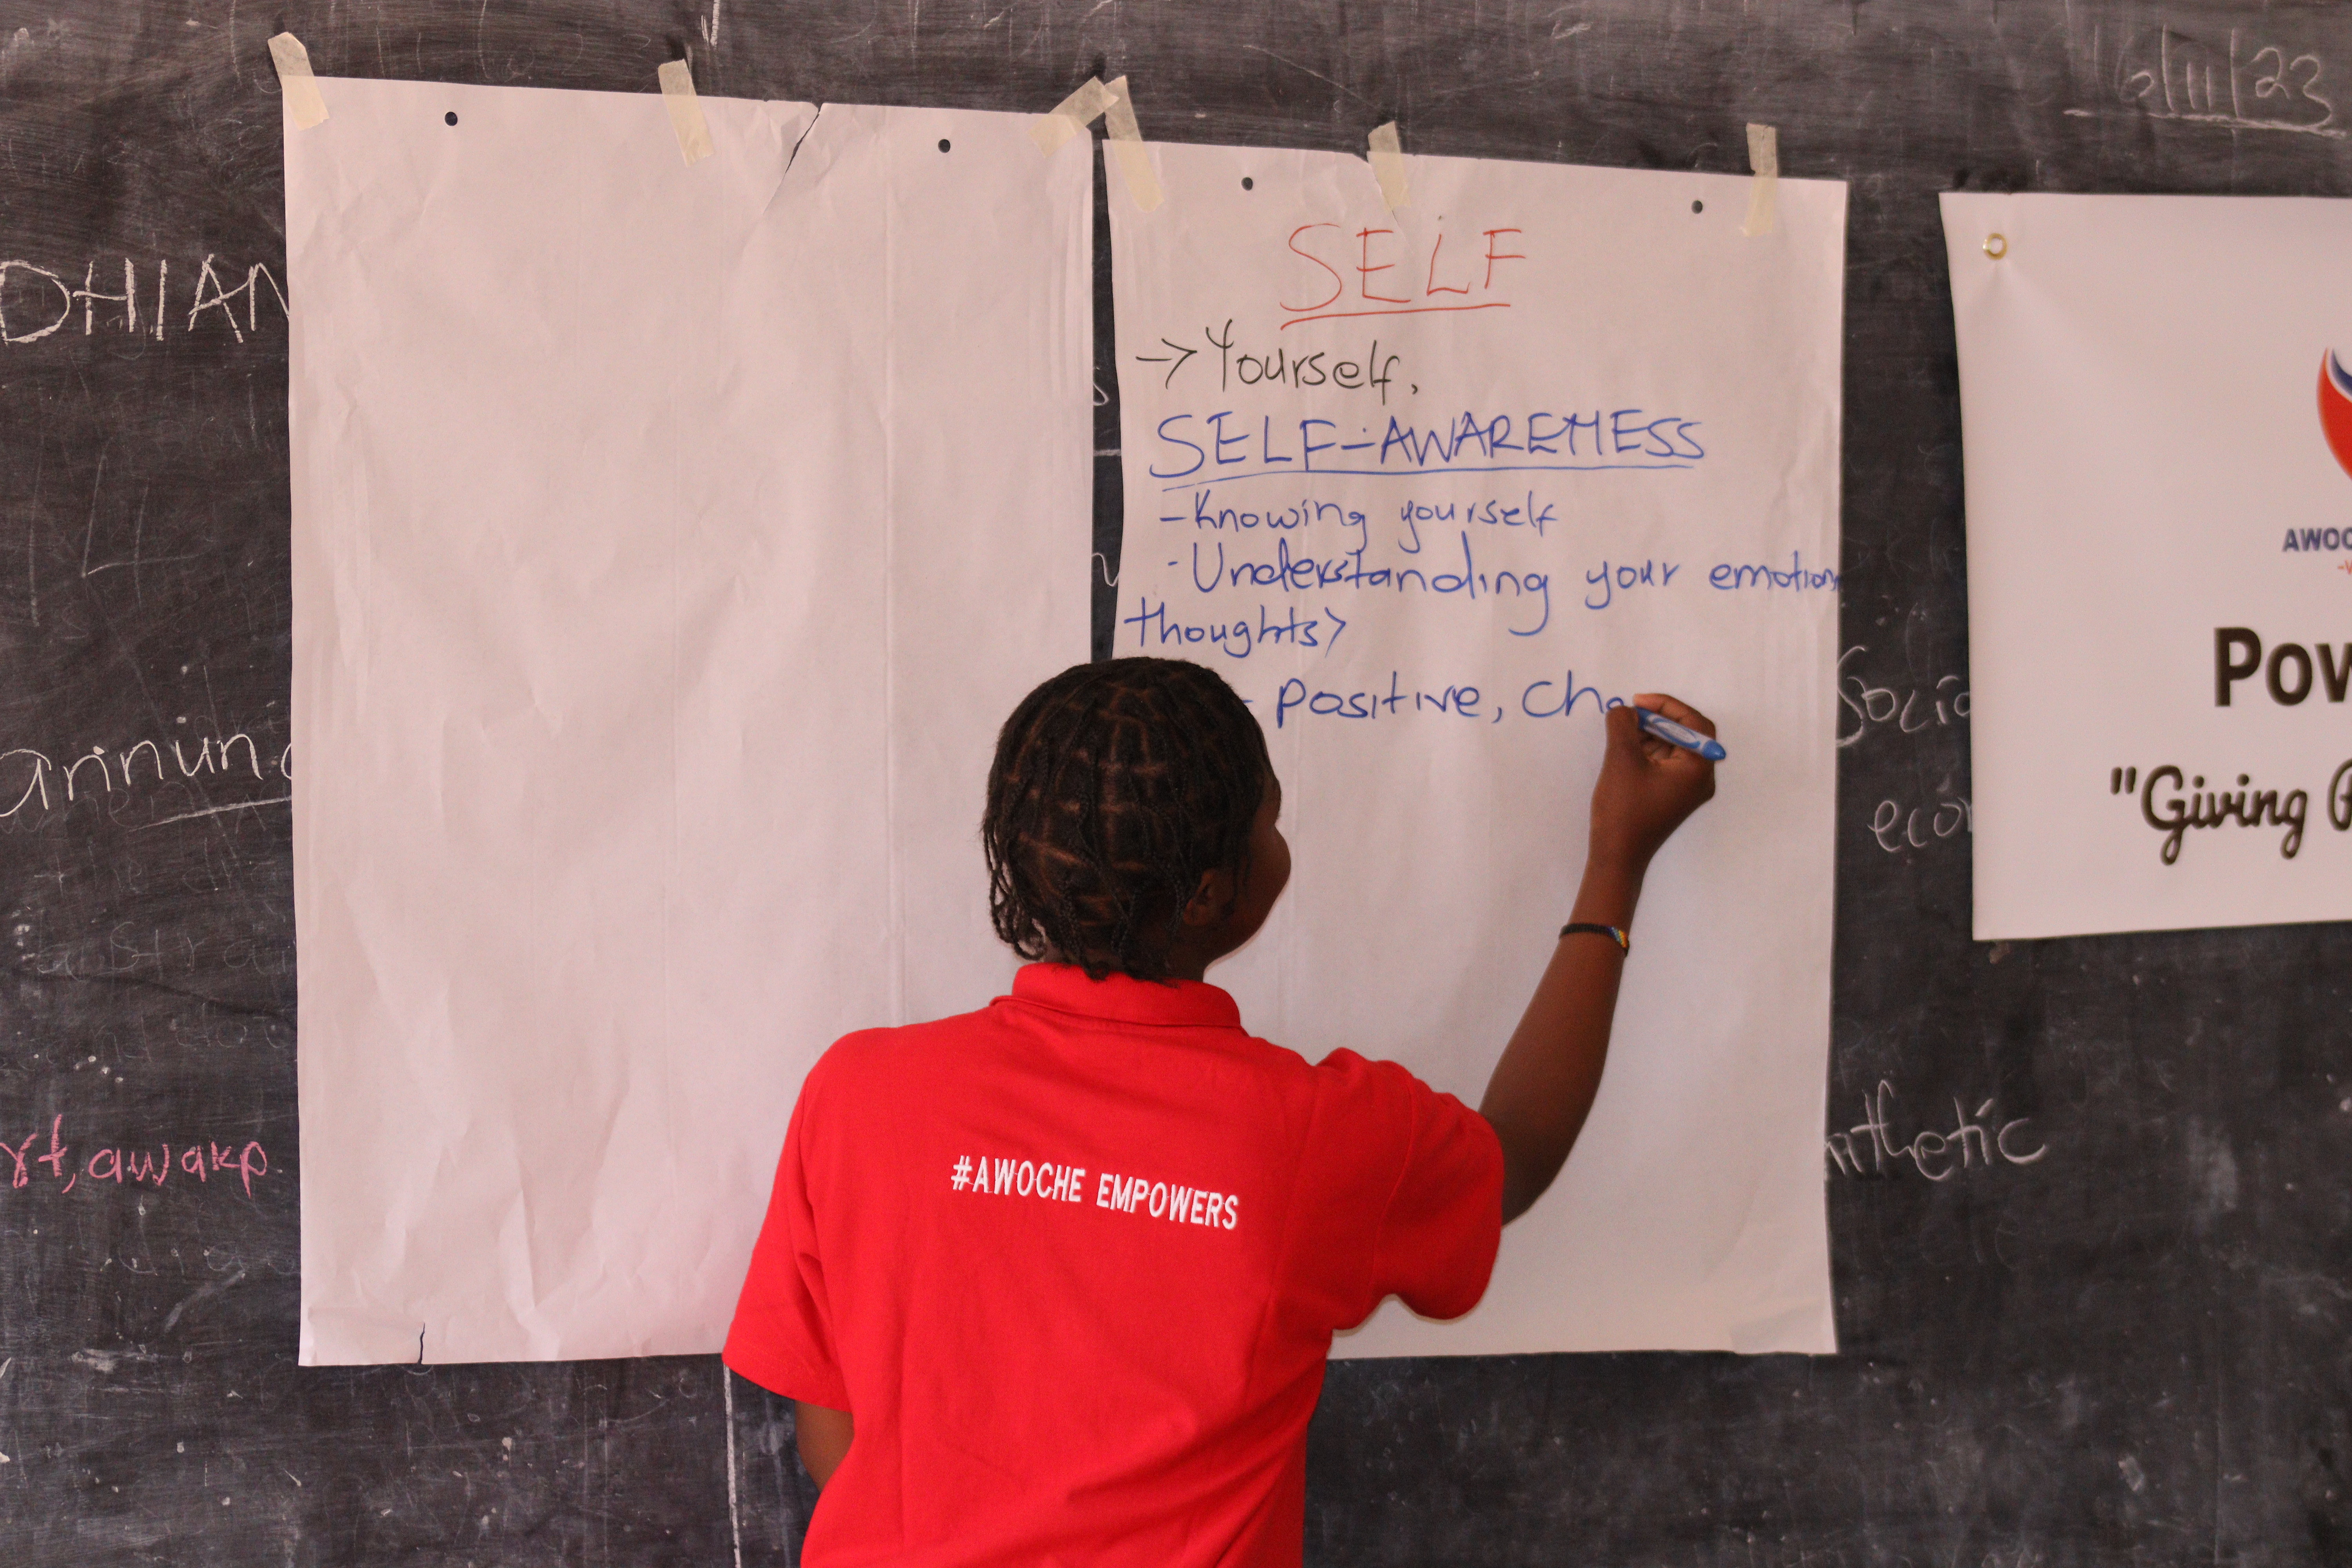 16/11/23
DHIAN
SELF
→ Yourself,
SELF-AWARENESS
- Knowing yourself
- Understanding your emotions
thoughts>
- Positive, Cha
annun
rt, awakp
Socio
econ
nthetic
AWOC
Pow
"Giving P
#AWOCHE EMPOWERS